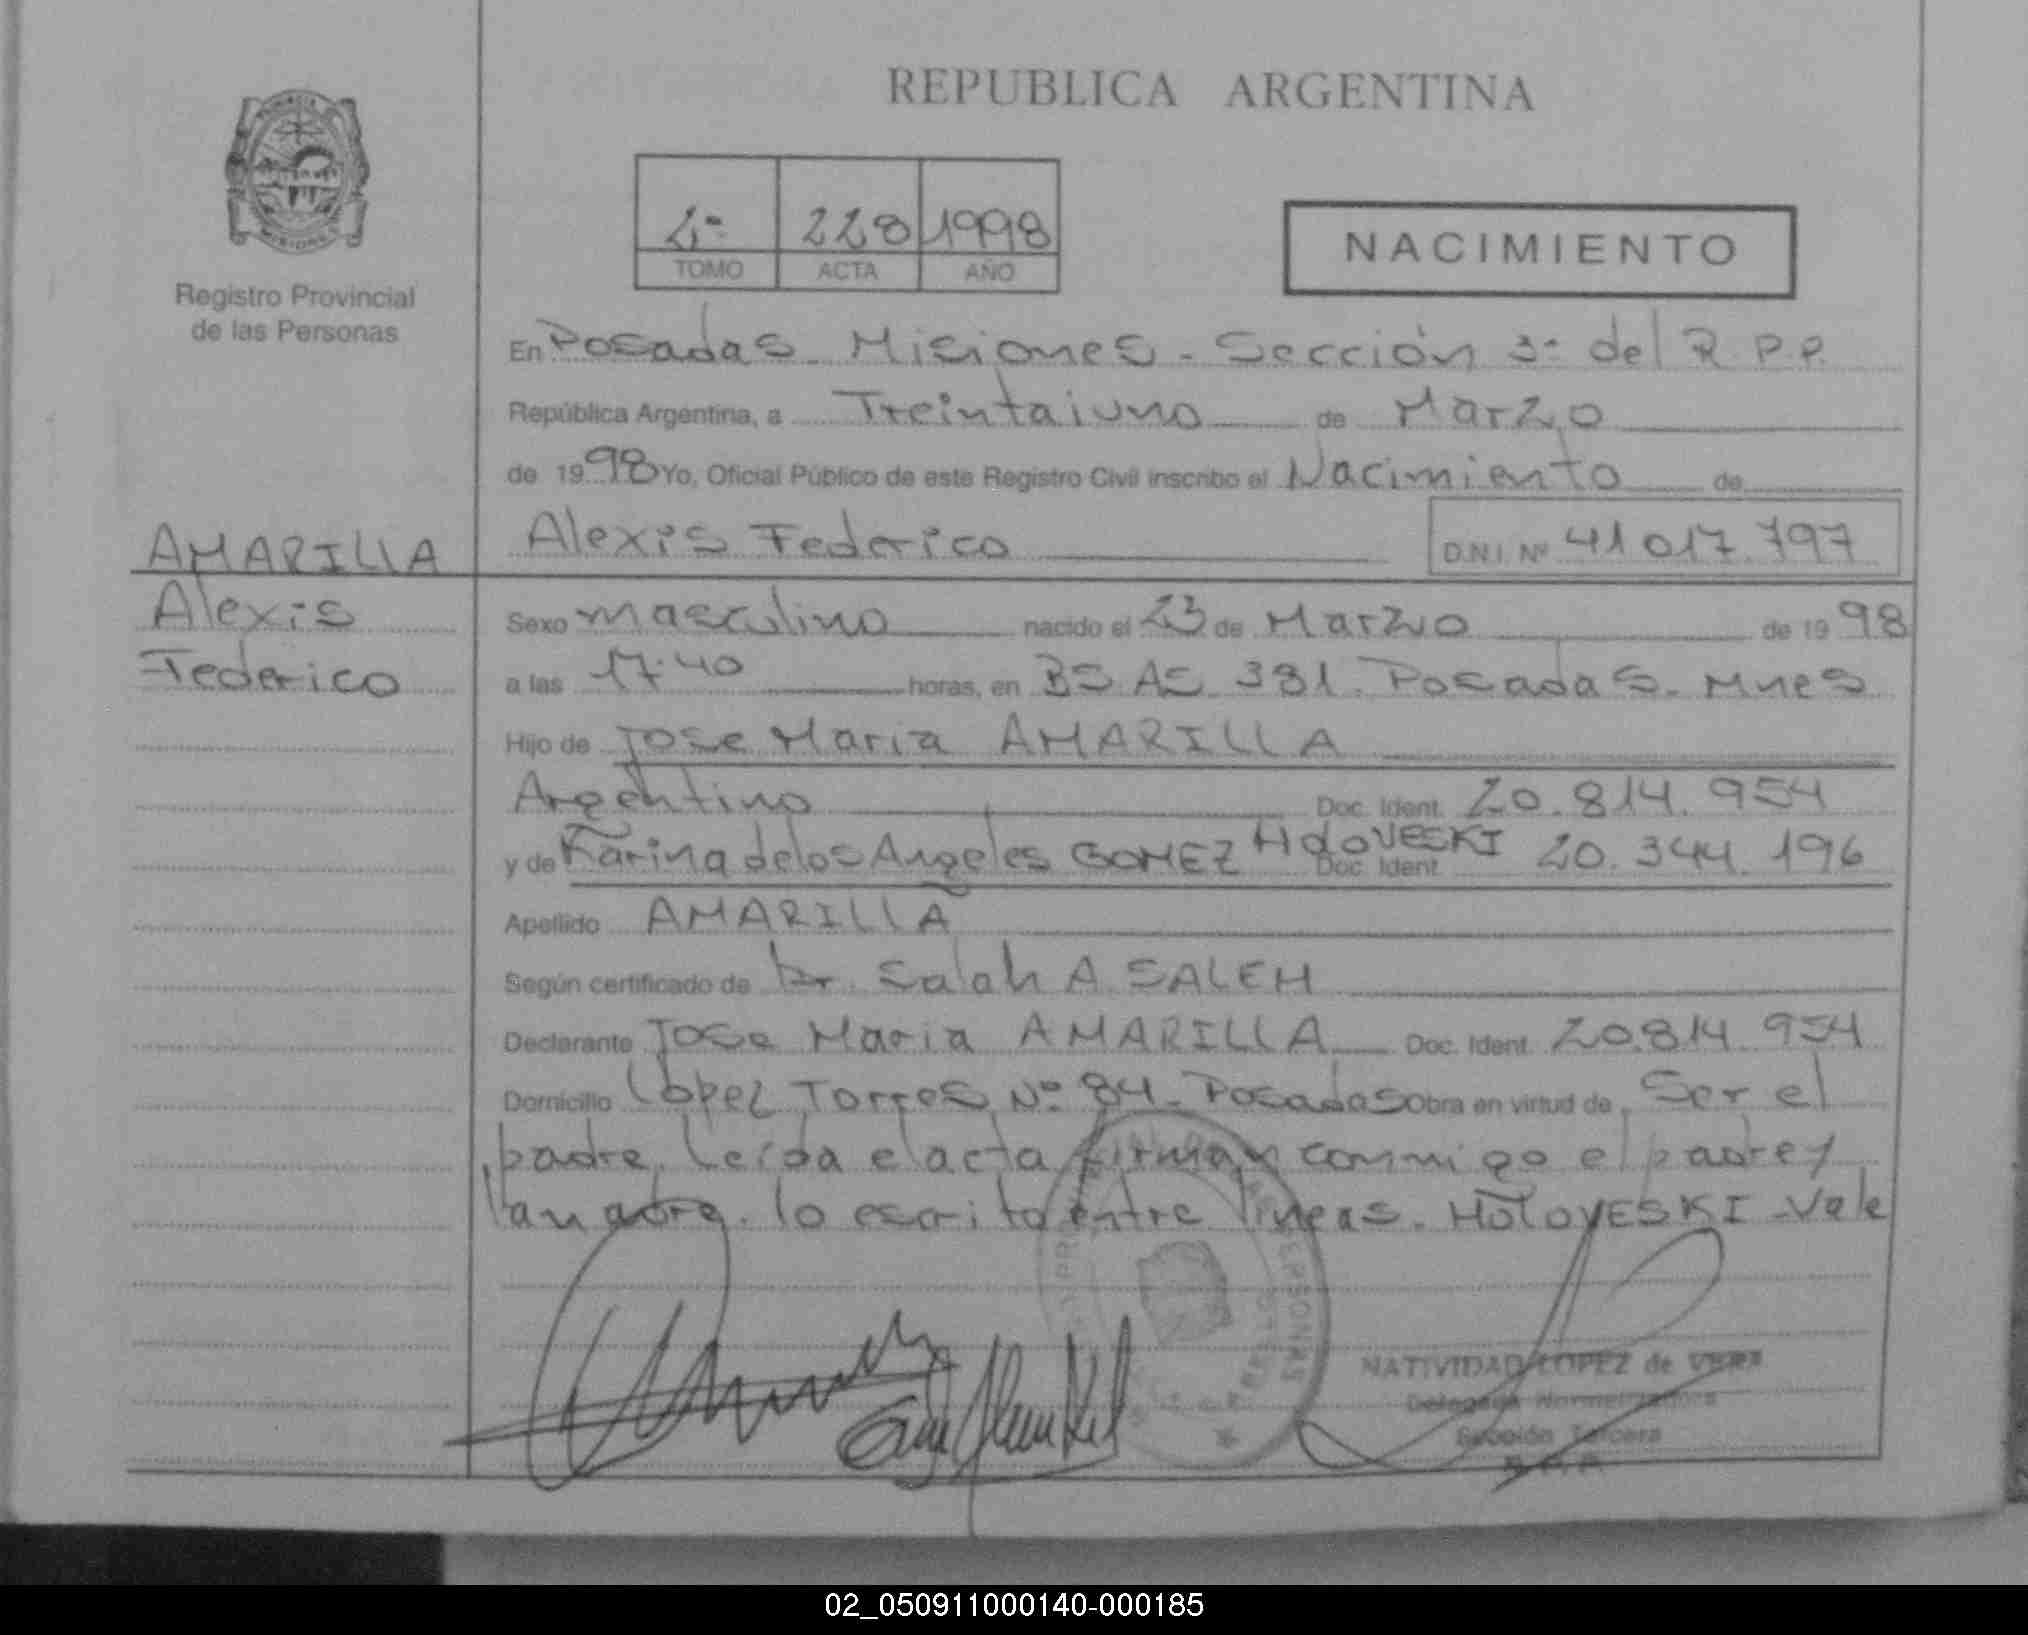 REPUBLICA ARGENTINA
MISIONES
Registro Provincial
de las Personas
2º 228 1998
TOMO ACTA AÑO
NACIMIENTO
En Posadas. Misiones - Sección 3º del R.P.P.
República Argentina, a Treintaiuno de Marzo
de 1998 Yo, Oficial Público de este Registro Civil inscribo el Nacimiento de
Alexis Federico D.N.I. Nº 41 017.797
AMARILLA
Alexis
Federico
Sexo masculino nacido el 23 de Marzo de 1998
a las 17.40 horas, en BS AS 381. Posadas. Mnes
Hijo de Jose Maria AMARILLA
Argentino Doc. Ident. 20.814.954
y de Karina de los Angeles GOMEZ HOLOVESKI Doc. Ident. 20.344.196
Apellido AMARILLA
Según certificado de Dr. Salah A. SALEH
Declarante Jose Maria AMARILLA Doc. Ident. 20.814.954
Domicilio López Torres Nº 84. Posadas Obra en virtud de Ser el
padre. Leída el acta firman conmigo el padre y
la madre. lo escrito entre líneas. HOLOVESKI - Vale
NATIVIDAD LOPEZ de VERA
Delegada Normalizadora
Sección Tercera
R.P.P.
02_050911000140-000185